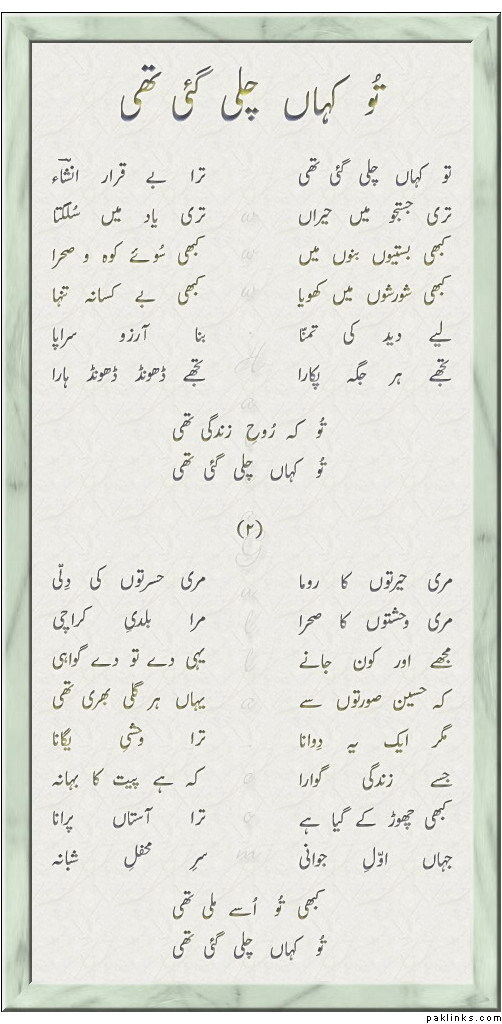 تُو کہاں چلی گئی تھی
تو کہاں چلی گئی تھی ترا بے قرار انشاؔء
تری جستجو میں حیراں تری یاد میں سُلگتا
کبھی بستیوں بنوں میں کبھی سُوئے کوہ و صحرا
کبھی شورشوں میں کھویا کبھی بے کسانہ تنہا
لیے دید کی تمنّا بنا آرزو سراپا
تجھے ہر جگہ پکارا تجھے ڈھونڈ ڈھونڈ ہارا
تُو کہ رُوحِ زندگی تھی
تُو کہاں چلی گئی تھی
(۲)
مری حیرتوں کا روما مری حسرتوں کی دِلّی
مری وحشتوں کا صحرا مرا بلدیِ کراچی
مجھے اور کون جانے یہی دے تو دے گواہی
کہ حسین صورتوں سے یہاں ہر گلی بھری تھی
مگر ایک یہ دِوانا ترا وحشیِ یگانا
جسے زندگی گوارا کہ ہے پیت کا بہانہ
کبھی چھوڑ کے گیا ہے ترا آستاں پرانا
جہاں اوّلِ جوانی سرِ محفلِ شبانہ
کبھی تُو اُسے ملی تھی
تُو کہاں چلی گئی تھی
paklinks.com